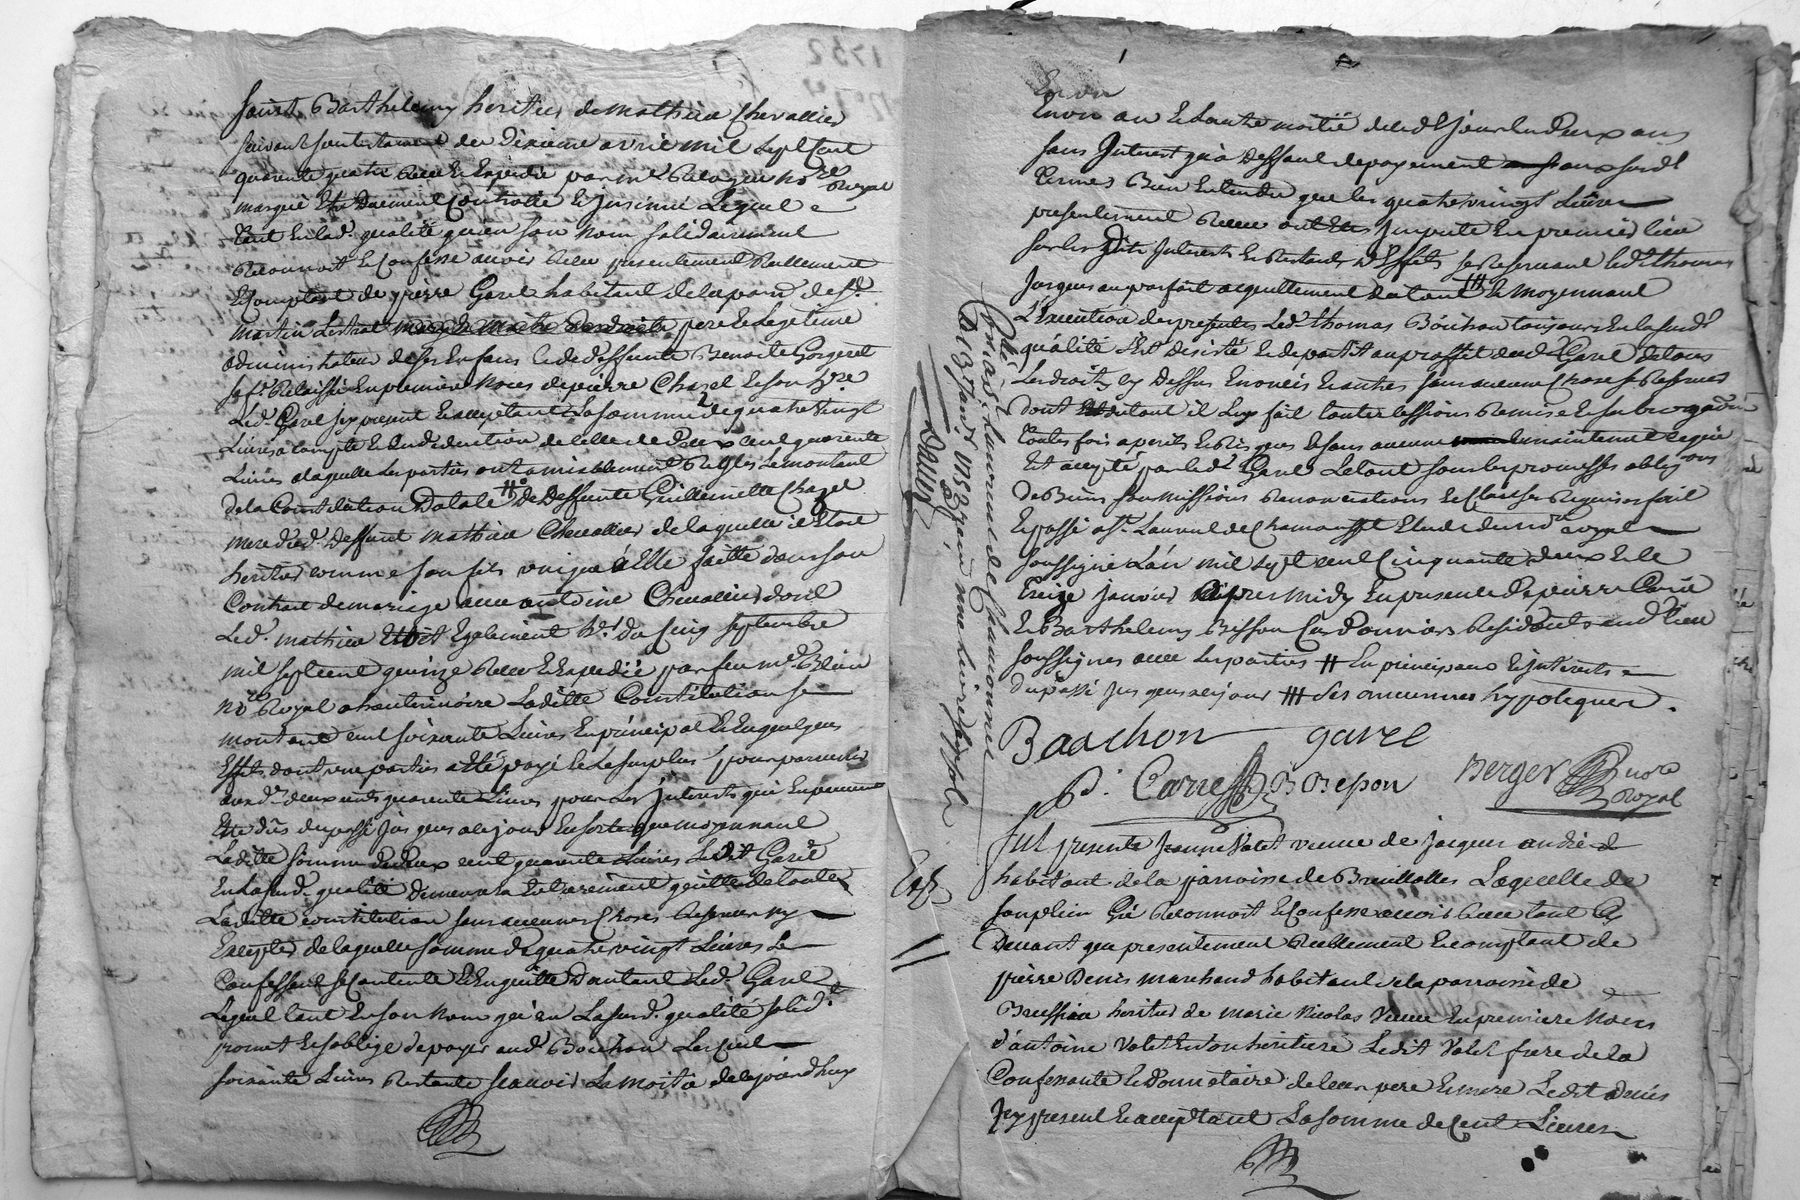 Saint Barthelemy heritier de mathieu Chevallier
suivant son testament du dixieme avril mil sept Cent
quarante quatre Receu et Expedié par me Relogue nore Royal
marqué Et duement Controllé et jnsinué Lequel
tant en lad. qualité qu'en son nom solidairement
Reconnoit et Confesse avoir Receu presentement Reellement
et Comptant de pierre Garel habitant de la parr. de St.
martin Lestrat pere et Legitime
administrateur de ses Enfans de deffunte Benoite Gorgeret
sa f. Relaissée En premiere noces de pierre Chazel et son hre
Led. Garel jcy present et acceptant La somme de quatre vingt
Livres a Compte et En deduction de celle de deux cent quarante
Livres a laquelle les parties ont amiablement Reglés Le montant
de la Constitution Dotale # De Deffunte Guillemette Chazel
mere dud. deffunt mathieu Chevallier de laquelle il Etoit
heritier comme son fils unique a Elle faitte dans son
Contrat de mariage avec antoine Chevallier dont
Led. mathieu Etoit Egalement hr. du Cinq septembre
mil sept cent quinze Receu et Expedié par feu me. Blein
nore Royal a Lad.itte Constitution se
montant cent soixante Livres En principal et En quelques
Effets dont une partie a Eté payé et Le surplus pour parvenir
aux d. deux cents quarante Livres pour Les jnterests qui En peuvent
Etre dûs du passé jusques a ce jour En sorte que moyennant
Laditte somme de deux cent quarante Livres Ledit Garel
En la sud. qualité demeurera Entierement quitte de toutte
Laditte constitution sans aucunes Choses Reserver ny
Excepter de laquelle somme de quatre vingt Livres Le
Confessant se Contente et En quitte d'autant Led. Garel
Lequel tant En son nom qu'en La sud. qualité solid.t
promet et s'oblige de payer aud. Bouchon Les Cent
soixante Livres Restante scavoir La moitié de ce jourd'huy
En un
En un an et L'autre moitié dud.t jour En deux ans
sans Jnterest qu'a deffaut de payement aux susd.
termes Bien Entendu que les quatre vingt Livres
presentement Receu ont Eté jmputé En premier lieu
sur les dits Jnterests et Restants d'Effets se Reservant led.t thomas
Jusques au parfait acquittement du tout ### et moyennant
L'Execution des presentes Led. thomas Bouchon toujours En la sud.
qualité s'est desisté et departit au proffit dud. Garel de tous
Les droits cy dessus Enoncés Et autres sans aucune Chose se Reserver
dont Et du tout il Luy fait toutte Cessions Remise et subrogation
touttes fois a perils et Risques et sans aucune maintenue ce qui a
Eté accepté par led.t Garel Le tout sous les promesses obligons
de Biens soumissions Renonciations et Clauses Requises fait
et passé a St. Laurent de Chamousset Etude du nore Royal
soussigné L'an mil sept cent Cinquante deux et le
treize janvier apres midy En presence de pierre Carrié
et Barthelemy Bisson Cordonniers Residants aud. lieu
soussignés avec les parties # En principaux et jnterests
du passé jusques a ce jour ### ses anciennes hypoteques.
Bouchon garel
P. Carrié B Bisson Berger nore Royal
Collé a St Laurent de Chamousset
Le 13 Janv.r 1752
fut presente Jeanne Valet veuve de jacques andré
habitant de la parroisse de Brussolles Laquelle de
son plein Gré Reconnoit et Confesse avoir Receu tant Cy
devant que presentement Reellement et comptant de
pierre Denis marchand habitant de la parroisse de
Brussieu heritier de marie Nicolas Veuve En premiere Noces
d'antoine Valet et son heritiere Ledit Valet frere de la
Confessante et donnataire de leur pere et mere Ledit Denis
Jcy present et acceptant La somme de Cent Livres